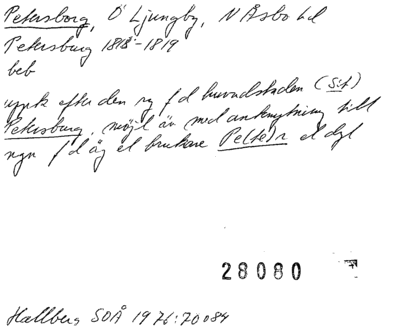 Petersborg, Ö Ljungby, N Åsbo hd
Petersburg 1818-1819
beb
uppk efter den ry f d huvudstaden (S:t)
Petersburg, möjl äv med anknytning till
ngn f d äg el brukare Pe(te)r el dyl
28080
Hallberg SOÅ 1976:70 o 84